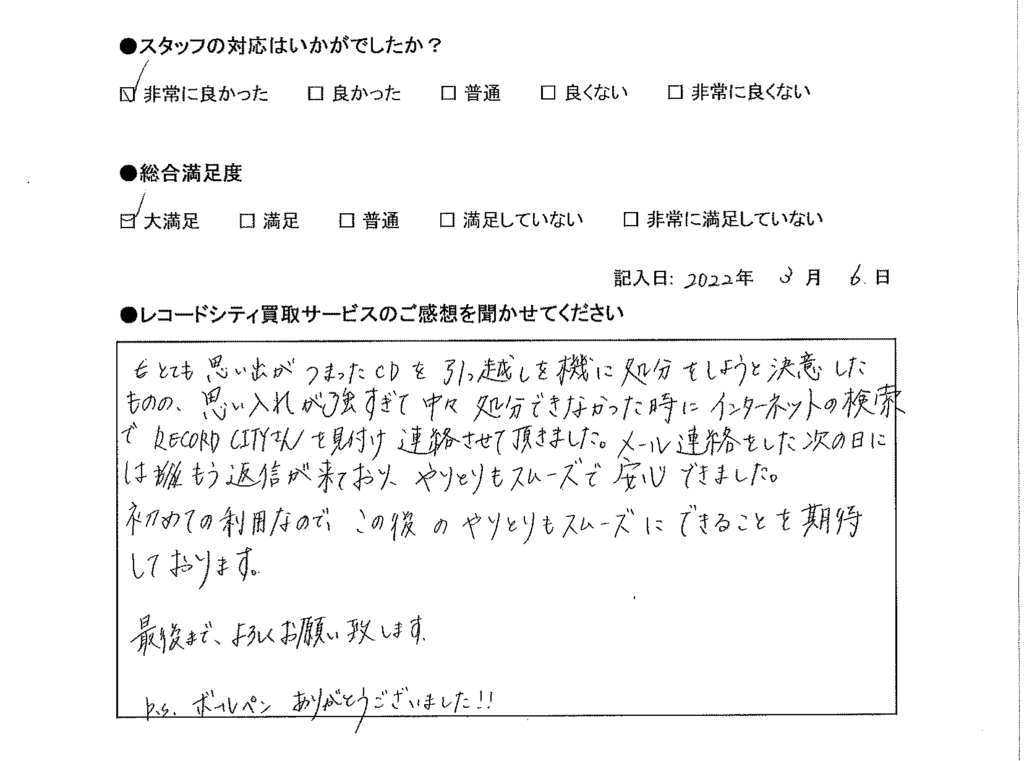 ●スタッフの対応はいかがでしたか？
☑ 非常に良かった □ 良かった □ 普通 □ 良くない □ 非常に良くない
●総合満足度
☑ 大満足 □ 満足 □ 普通 □ 満足していない □ 非常に満足していない
記入日: 2022年 3月 6日
●レコードシティ買取サービスのご感想を聞かせてください
とても思い出がつまったCDを引っ越しを機に処分をしようと決意した
ものの、思い入れが強すぎて中々処分できなかった時にインターネットの検索
で RECORD CITYさんを見付け連絡させて頂きました。メール連絡をした次の日に
はもう返信が来ており、やりとりもスムーズで安心できました。
初めての利用なので、この後のやりとりもスムーズにできることを期待
しております。
最後まで、よろしくお願い致します。
p.s. ボールペン ありがとうございました!!